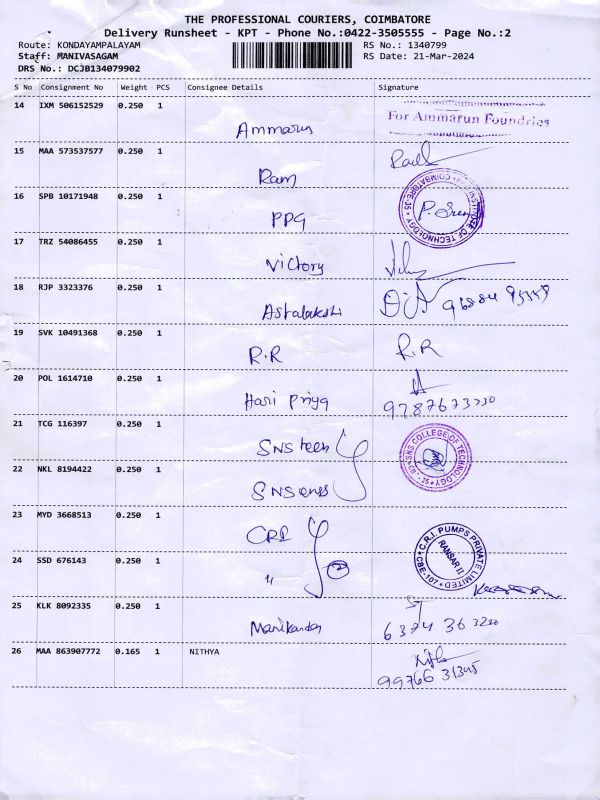 THE PROFESSIONAL COURIERS, COIMBATORE
Delivery Runsheet - KPT - Phone No.:0422-3505555 - Page No.:2
Route: KONDAYAMPALAYAM RS No.: 1340799
Staff: MANIVASAGAM RS Date: 21-Mar-2024
DRS No.: DCJB134079902
S No Consignment No Weight PCS Consignee Details Signature
14 IXM 506152529 0.250 1 Ammarun For Ammarun Foundries
15 MAA 573537577 0.250 1 Ram
16 SPB 10171948 0.250 1 PPG OF TECHNOLOGY COIMBATORE-35
17 TRZ 54086455 0.250 1 Victory
18 RJP 3323376 0.250 1
19 SVK 10491368 0.250 1 R.R R.R
20 POL 1614710 0.250 1 Hari Priya 9787673330
21 TCG 116397 0.250 1 SNS SNS COLLEGE OF TECHNOLOGY
22 NKL 8194422 0.250 1 SNS
23 MYD 3668513 0.250 1 CRI C.R.I. PUMPS PRIVATE LIMITED CBE-107
24 SSD 676143 0.250 1 " 2
25 KLK 8092335 0.250 1 Manikandan 6374 363230
26 MAA 863907772 0.165 1 NITHYA 99766 31345